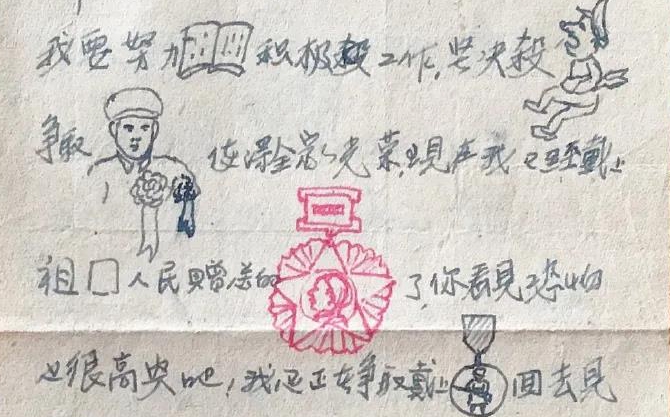 我要努力积极工作,坚决殺
争取使得全家光荣,現在我已经戴上
祖囗人民赠送的了,你看見恐怕
也很高兴吧,我还正在争取戴上回去見